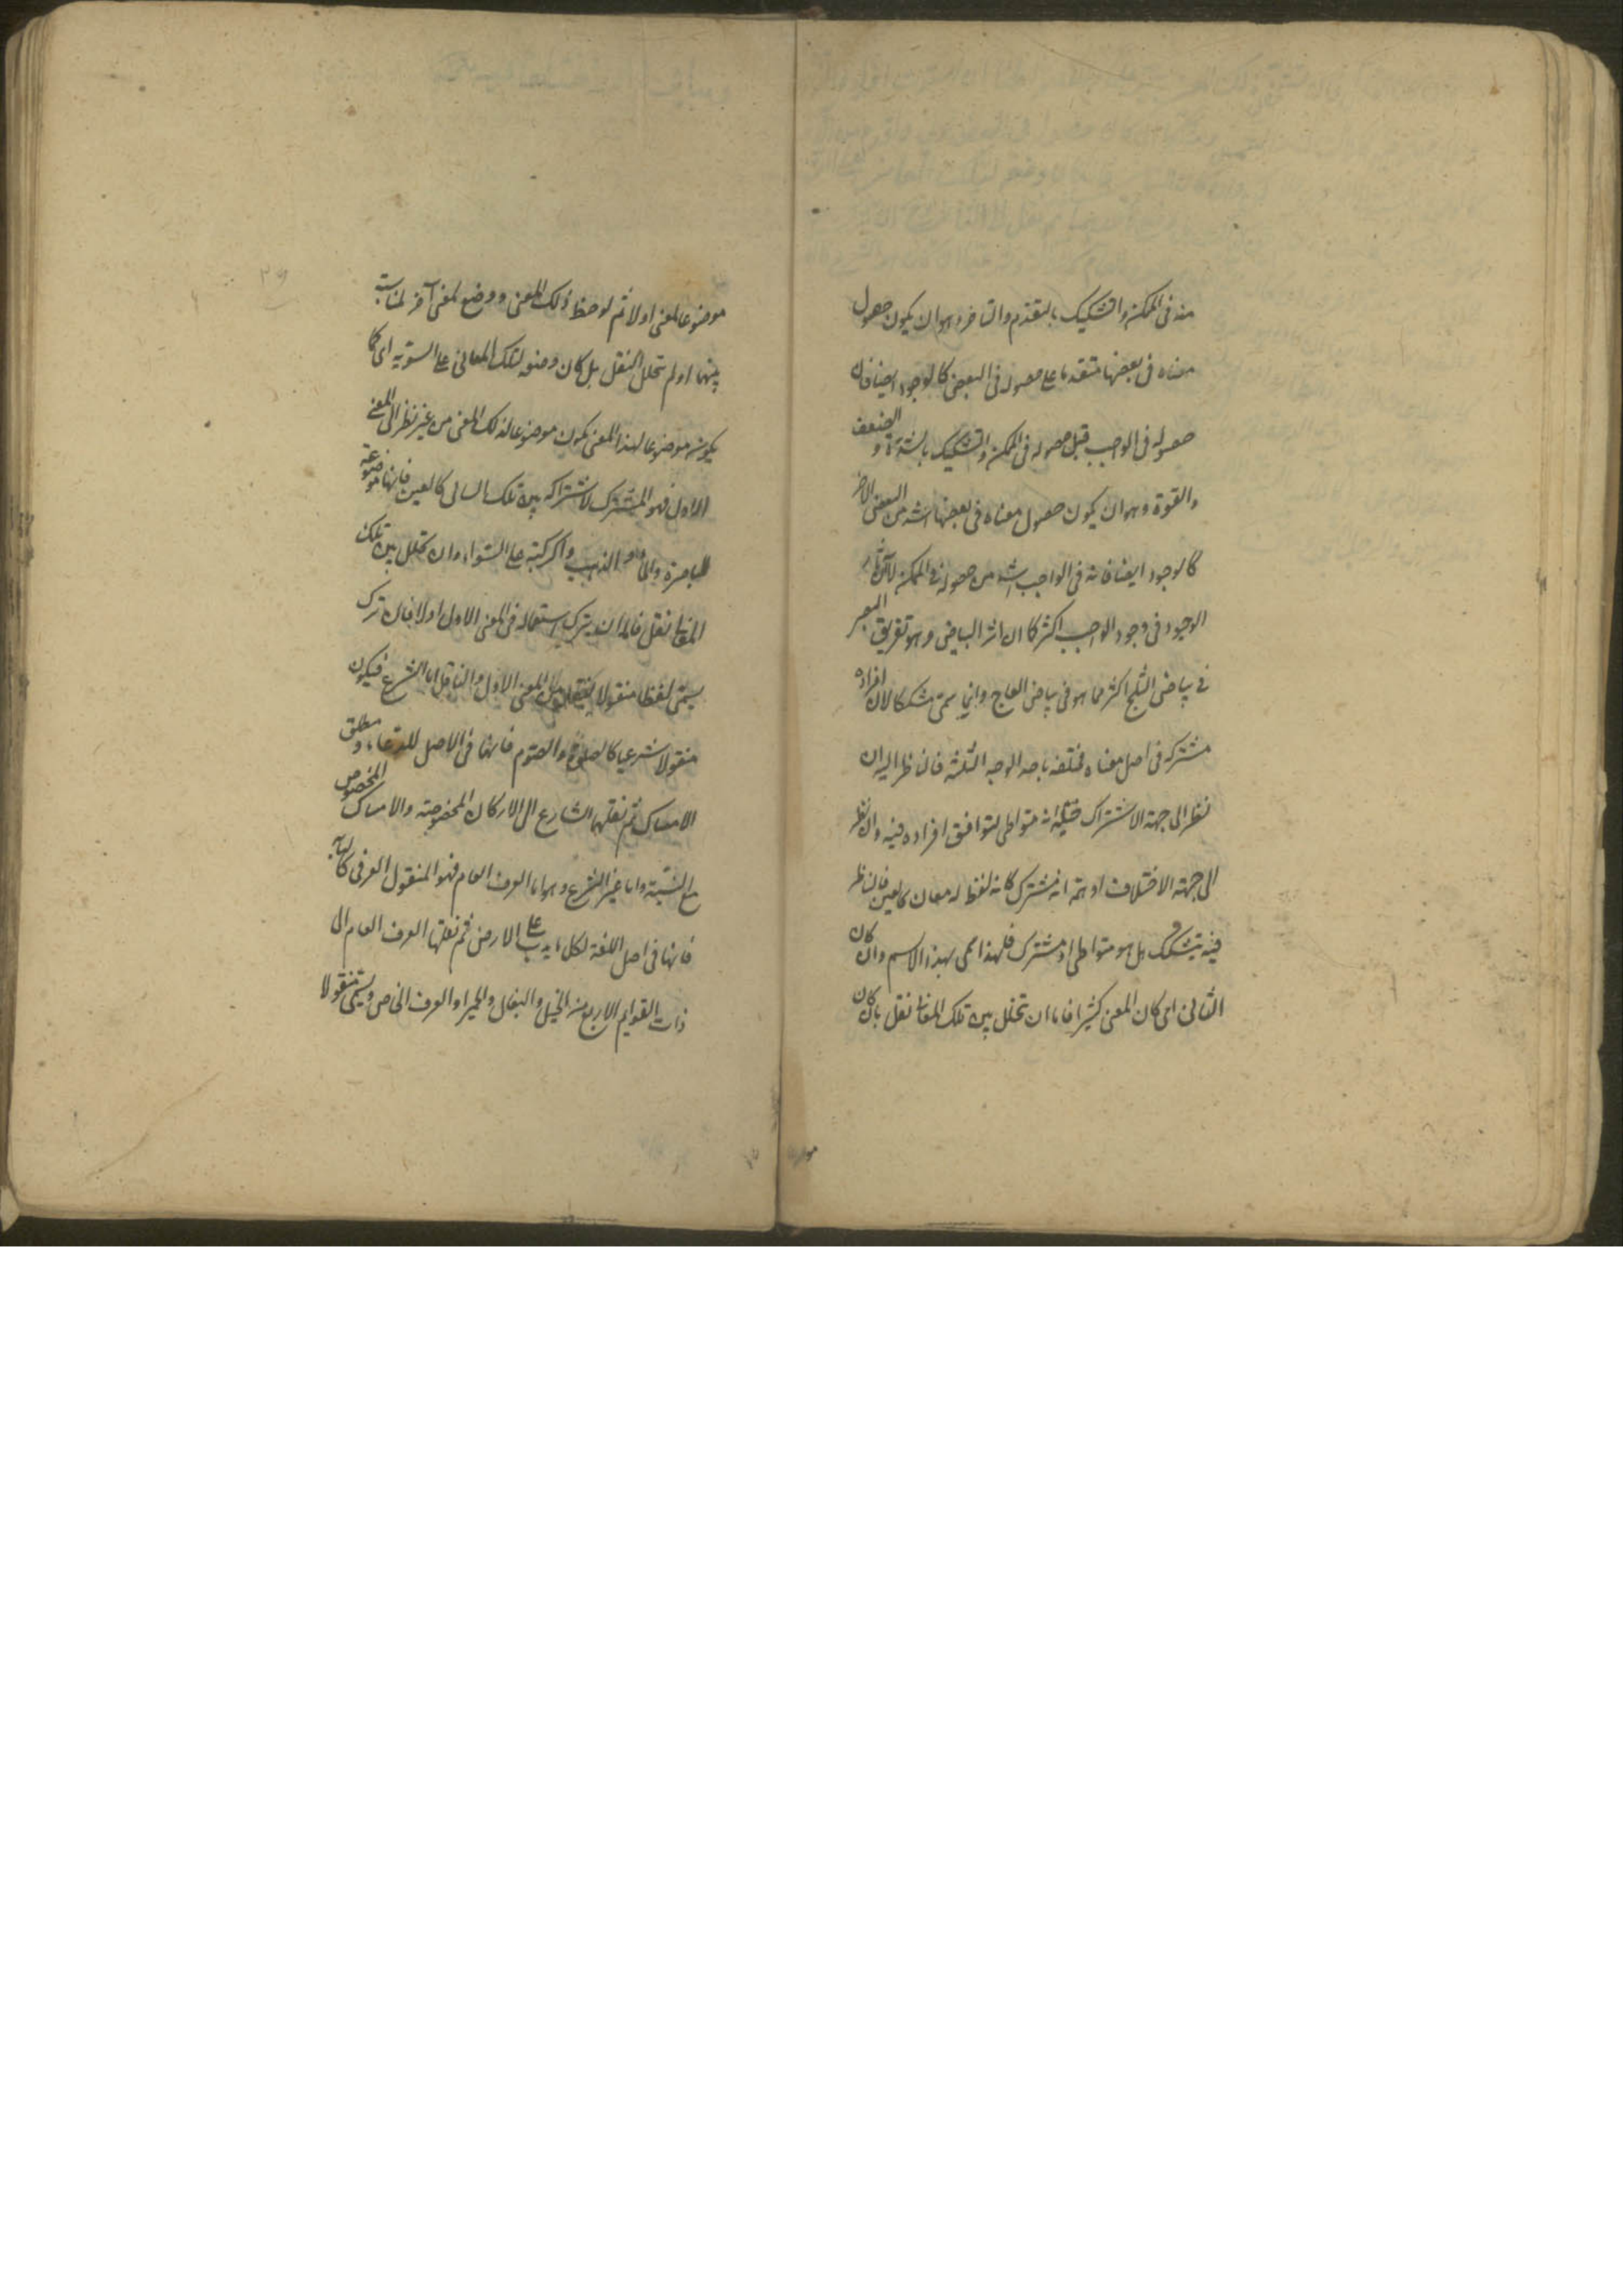 منه فى الممكن والتشكيك بالتقدم والتاخر وهو ان يكون حصول
معناه فى بعضها متقدما على حصوله فى البعض كالوجود ايضا فان
حصوله فى الواجب قبل حصوله فى الممكن والتشكيك بالشدة و الضعف
والقوة وهو ان يكون حصول معناه فى بعضها اشد من البعض الاخر
كالوجود ايضا فانه فى الواجب اشد من حصوله فى الممكن لان آثار
الوجود فى وجود الواجب اكثر كما ان اثر البياض وهو تفريق البصر
فى بياض الثلج اكثر مما هو فى بياض العاج وانما سمى مشككا لان افراده
مشتركة فى اصل معناه مختلفة باحد الوجوه الثلثة فالناظر اليه ان
نظر الى جهة الاشتراك خيله انه متواطى لتوافق افراده فيه وان نظر
الى جهة الاختلاف اوهمه انه مشترك كانه لفظ له معان كالعين فالناظر
فيه يتشكك هل هو متواطى او مشترك فلهذا سمى بهذا الاسم وان كان
الثانى اى كان المعنى كثيرا فاما ان تخلل بين تلك المعانى نقل بان كان
موضوعا لمعنى اولا ثم لوحظ ذلك المعنى ووضع لمعنى آخر لمناسبة
بينهما او لم تخلل النقل بل كان وضعه لتلك المعانى على السوية اى كما
يكون موضوعا لهذا المعنى يكون موضوعا لذلك المعنى من غير نظر الى المعنى
الاول فهو المشترك لاشتراكه بين تلك المعانى كالعين فانها موضوعة
للباصرة والماء والذهب والركبة على السواء وان تخلل بين تلك
المعانى نقل فاما ان يترك استعماله فى المعنى الاول اولا فان ترك
يسمى لفظا منقولا لنقله من المعنى الاول والناقل اما الشرع فيكون
منقولا شرعيا كالصلوة والصوم فانهما فى الاصل للدعاء و مطلق
الامساك ثم نقلهما الشارع الى الاركان المخصوصة والامساك المخصوص
مع النية واما غير الشرع وهو اما العرف العام فهو المنقول العرفى كالدابة
فانها فى اصل اللغة لكل ما يدب على الارض ثم نقلها العرف العام الى
ذات القوايم الاربع من الخيل والبغال والحمير او العرف الخاص ويسمى منقولا